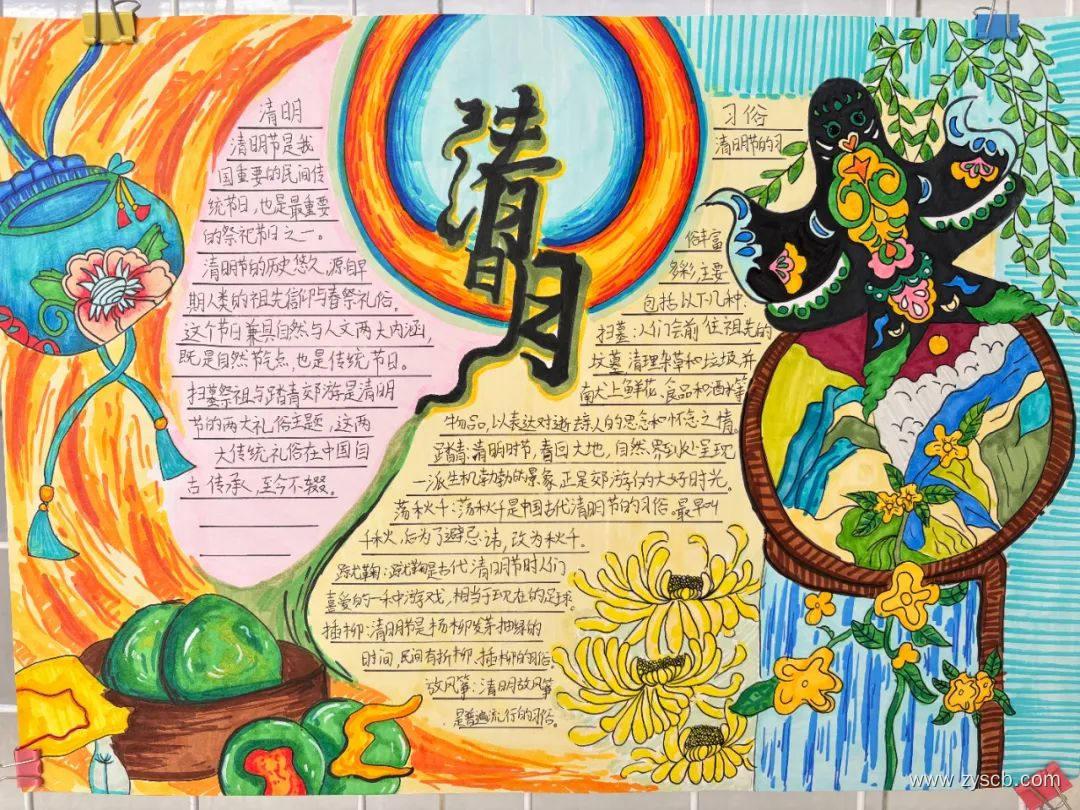 清明
清明
清明节是我
国重要的民间传
统节日，也是最重要
的祭祀节日之一。
清明节的历史悠久，源自早
期人类的祖先信仰与春祭礼俗。
这个节日兼具自然与人文两大内涵，
既是自然节气点，也是传统节日。
扫墓祭祖与踏青郊游是清明
节的两大礼俗主题，这两
大传统礼俗在中国自
古传承，至今不辍。
习俗
清明节的习
俗丰富
多彩主要
包括以下几种.
扫墓：人们会前往祖先的
坟墓清理杂草和垃圾并
献上鲜花、食品和酒水等
物品，以表达对逝去亲人的思念和怀念之情。
踏青：清明时节，春回大地，自然界到处呈现
一派生机勃勃的景象，正是郊游的大好时光。
荡秋千：荡秋千是中国古代清明节的习俗。最早叫
千秋，后为了避忌讳，改为秋千。
蹴鞠：蹴鞠是古代清明节时人们
喜爱的一种游戏，相当于现在的足球。
插柳：清明节是杨柳发芽抽绿的
时间，民间有折柳、插柳的习俗。
放风筝：清明放风筝
是普遍流行的习俗。
www.zyscb.com